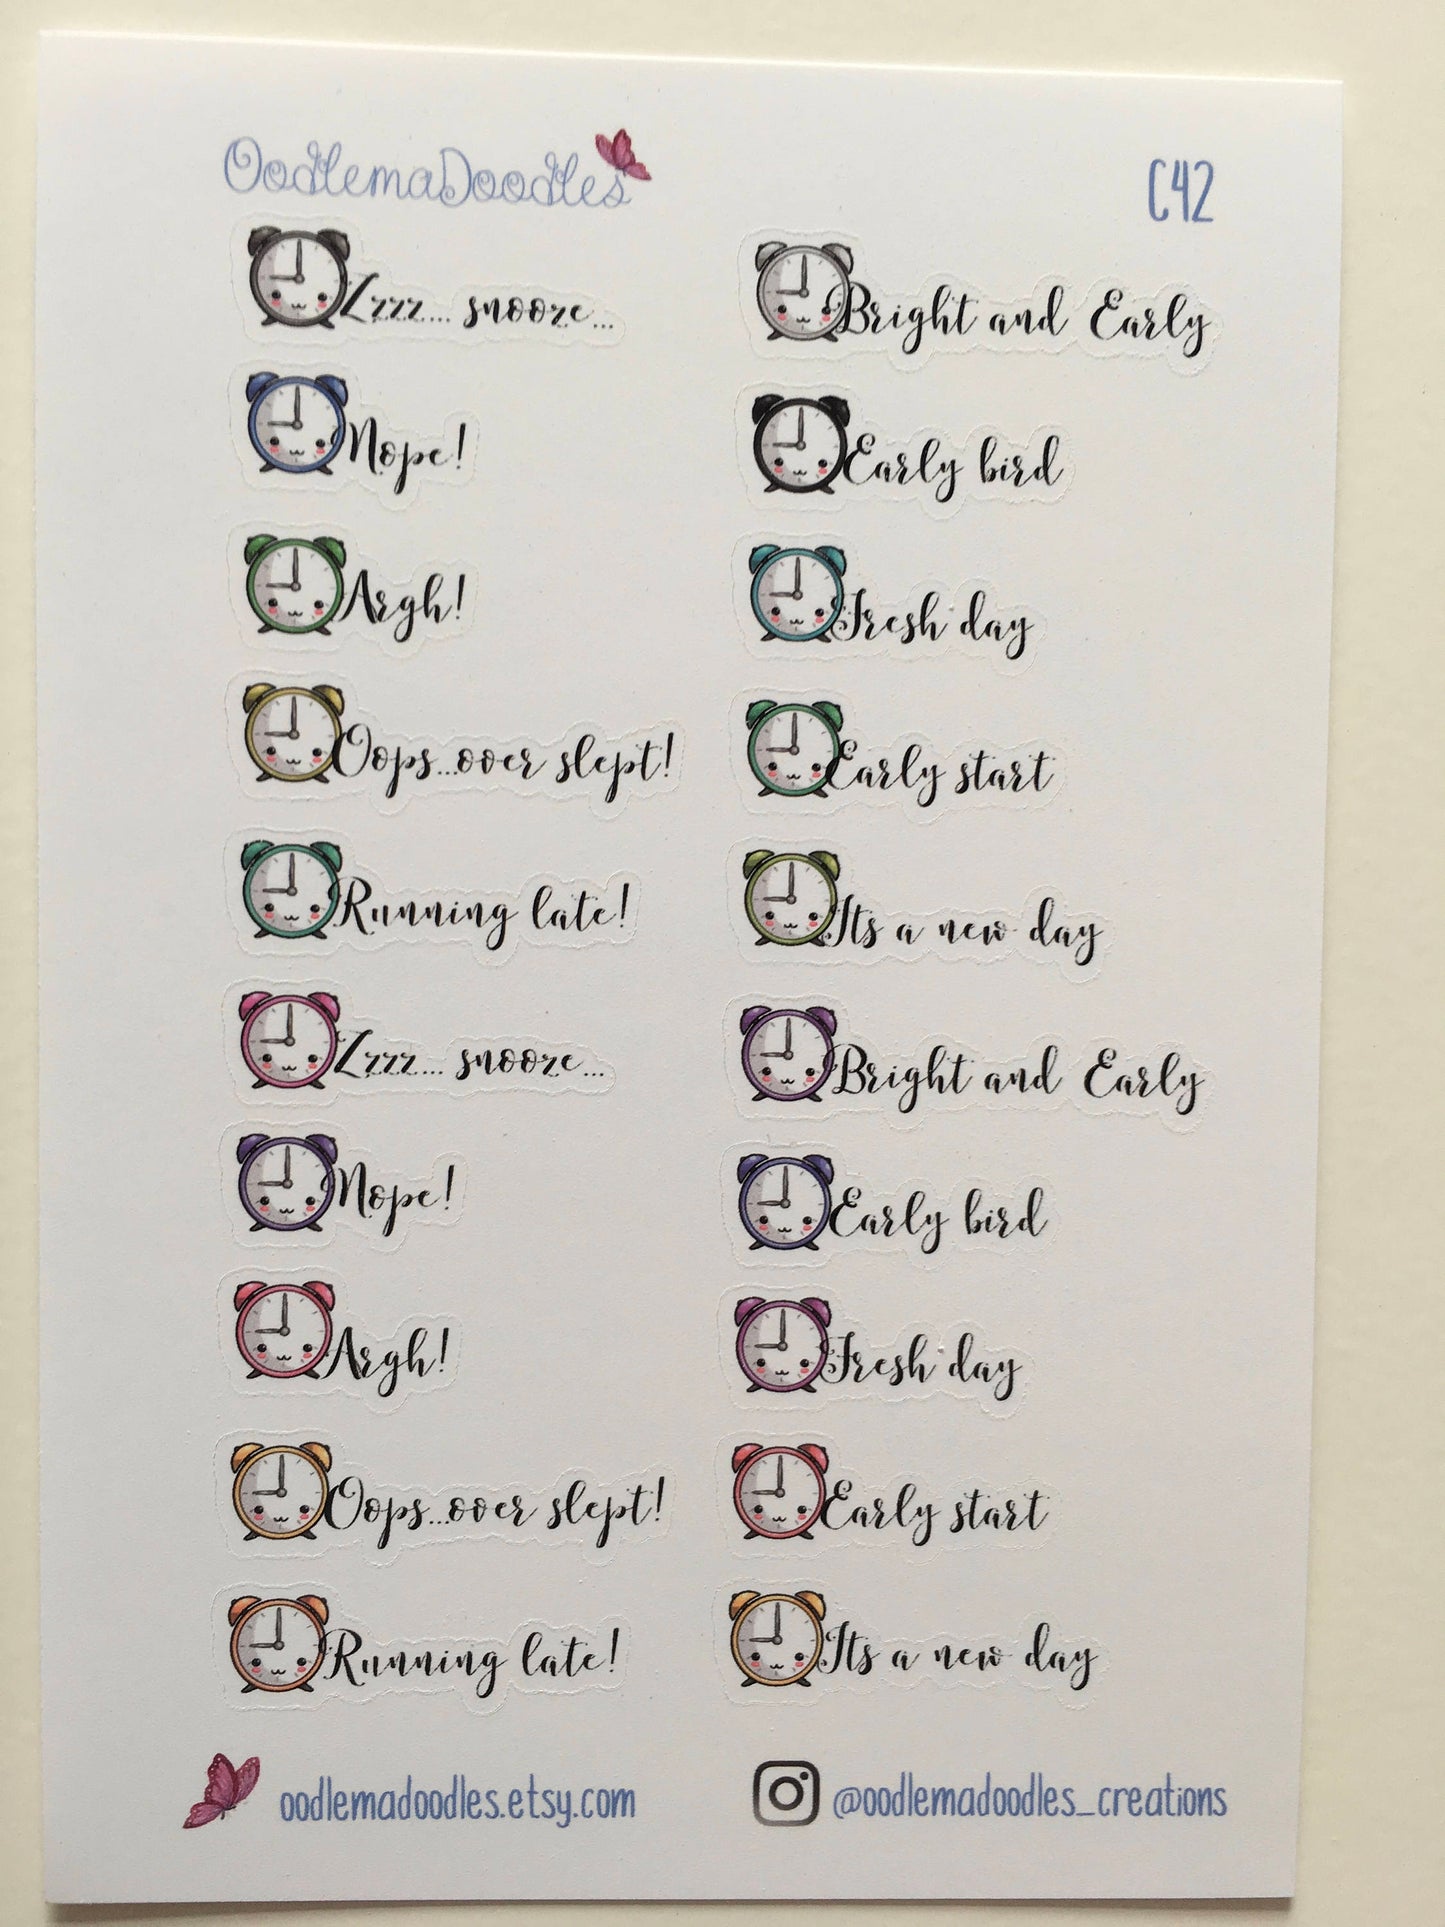 OodlemaDoodles
C42
Zzzz... snooze...
Nope!
Argh!
Oops...over slept!
Running late!
Zzzz... snooze...
Nope!
Argh!
Oops...over slept!
Running late!
Bright and Early
Early bird
Fresh day
Early start
Its a new day
Bright and Early
Early bird
Fresh day
Early start
Its a new day
oodlemadoodles.etsy.com
@oodlemadoodles_creations